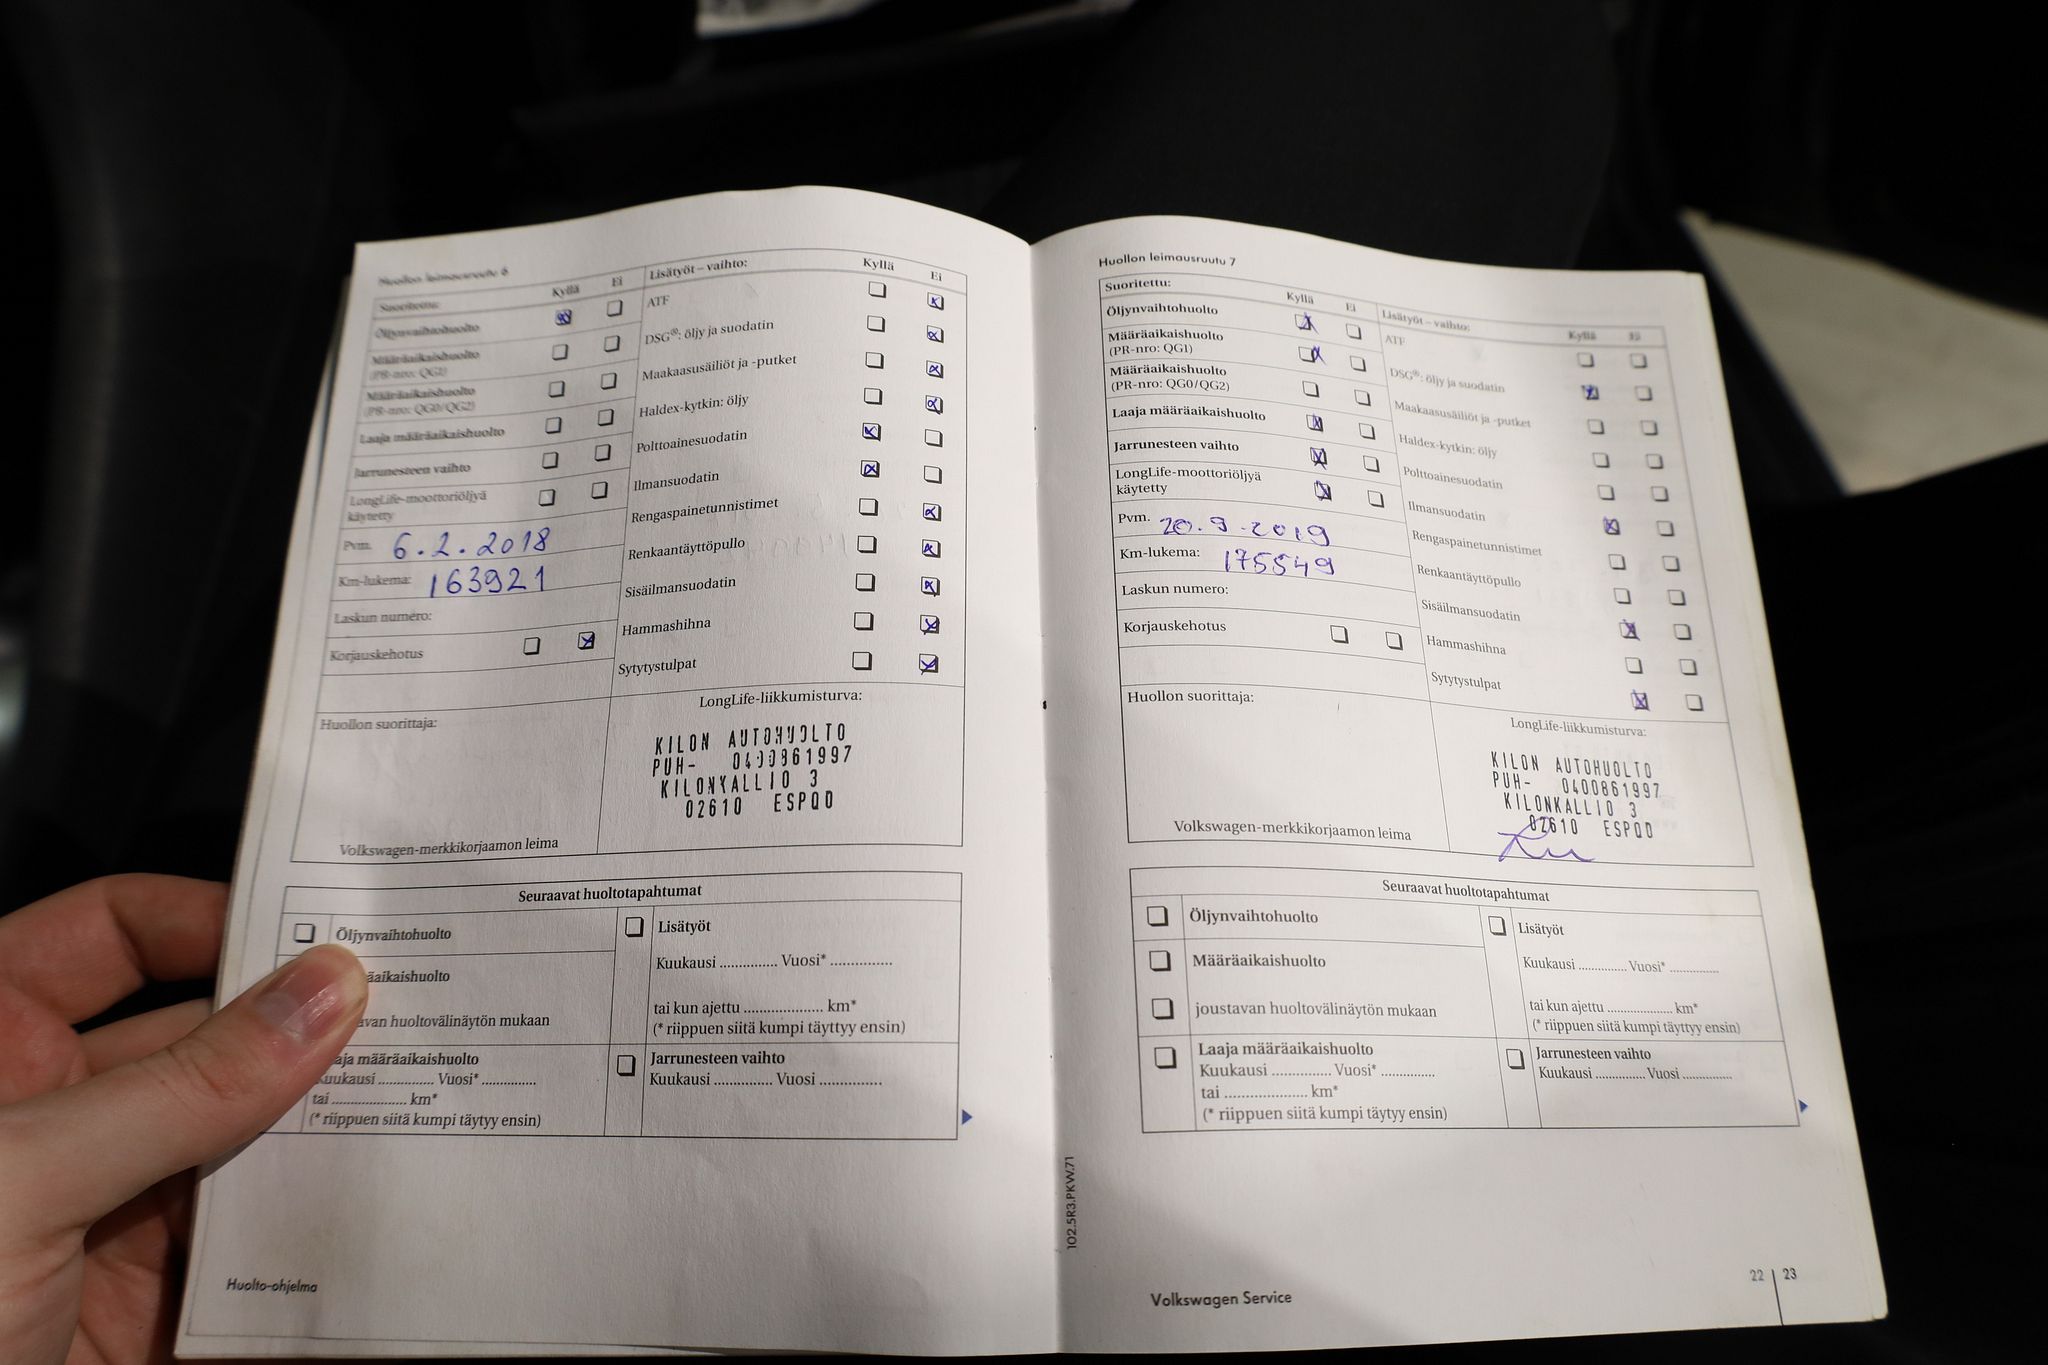 Huollon leimausruutu 6
Suoritettu:
Kyllä Ei
Öljynvaihtohuolto
Määräaikaishuolto
(PR-nro: QG1)
Määräaikaishuolto
(PR-nro: QG0/QG2)
Laaja määräaikaishuolto
Jarrunesteen vaihto
LongLife-moottoriöljyä
käytetty
Pvm. 6.2.2018
Km-lukema: 163921
Laskun numero:
Korjauskehotus
Lisätyöt – vaihto:
Kyllä Ei
ATF
DSG®: öljy ja suodatin
Maakaasusäiliöt ja -putket
Haldex-kytkin: öljy
Polttoainesuodatin
Ilmansuodatin
Rengaspainetunnistimet
Renkaantäyttöpullo
Sisäilmansuodatin
Hammashihna
Sytytystulpat
Huollon suorittaja:
Volkswagen-merkkikorjaamon leima
LongLife-liikkumisturva:
KILON AUTOHUOLTO
PUH- 0400861997
KILONKALLIO 3
02610 ESPOO
Seuraavat huoltotapahtumat
Öljynvaihtohuolto
äaikaishuolto
avan huoltovälinäytön mukaan
aja määräaikaishuolto
Kuukausi .............. Vuosi* ..............
tai ..................... km*
(* riippuen siitä kumpi täytyy ensin)
Lisätyöt
Kuukausi ............... Vuosi* ................
tai kun ajettu .................... km*
(* riippuen siitä kumpi täyttyy ensin)
Jarrunesteen vaihto
Kuukausi ............... Vuosi ................
Huolto-ohjelma
102.5R3.PKW.71
Huollon leimausruutu 7
Suoritettu:
Kyllä Ei
Öljynvaihtohuolto
Määräaikaishuolto
(PR-nro: QG1)
Määräaikaishuolto
(PR-nro: QG0/QG2)
Laaja määräaikaishuolto
Jarrunesteen vaihto
LongLife-moottoriöljyä
käytetty
Pvm. 20.9.2019
Km-lukema: 175549
Laskun numero:
Korjauskehotus
Lisätyöt – vaihto:
Kyllä Ei
ATF
DSG®: öljy ja suodatin
Maakaasusäiliöt ja -putket
Haldex-kytkin: öljy
Polttoainesuodatin
Ilmansuodatin
Rengaspainetunnistimet
Renkaantäyttöpullo
Sisäilmansuodatin
Hammashihna
Sytytystulpat
Huollon suorittaja:
Volkswagen-merkkikorjaamon leima
LongLife-liikkumisturva:
KILON AUTOHUOLTO
PUH- 0400861997
KILONKALLIO 3
02610 ESPOO
Seuraavat huoltotapahtumat
Öljynvaihtohuolto
Määräaikaishuolto
joustavan huoltovälinäytön mukaan
Laaja määräaikaishuolto
Kuukausi ............... Vuosi* ..............
tai ...................... km*
(* riippuen siitä kumpi täytyy ensin)
Lisätyöt
Kuukausi .............. Vuosi* ..............
tai kun ajettu ................... km*
(* riippuen siitä kumpi täyttyy ensin)
Jarrunesteen vaihto
Kuukausi .............. Vuosi ..............
Volkswagen Service
22 23